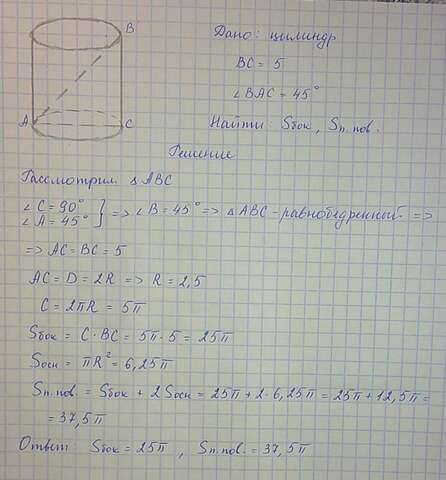 B
A
C
Дано: цилиндр
BC = 5
∠BAC = 45°
Найти: Sбок, Sп.пов.
Решение
Рассмотрим △ABC
∠C = 90°
∠A = 45° } => ∠B = 45° => △ABC - равнобедренный =>
=> AC = BC = 5
AC = D = 2R => R = 2,5
C = 2πR = 5π
Sбок = C · BC = 5π · 5 = 25π
Sосн = πR² = 6,25π
Sп.пов. = Sбок + 2Sосн = 25π + 2 · 6,25π = 25π + 12,5π =
= 37,5π
Ответ: Sбок = 25π, Sп.пов. = 37,5π